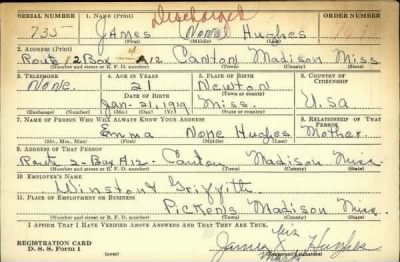 SERIAL NUMBER 1. NAME (Print) Discharged ORDER NUMBER
735 James None Hughes
(First) (Middle) (Last)
2. ADDRESS (Print)
Route 2 Box A12. Canton Madison Miss.
(Number and street or R. F. D. number) (Town) (County) (State)
3. TELEPHONE 4. AGE IN YEARS 5. PLACE OF BIRTH 6. COUNTRY OF CITIZENSHIP
None. 21 Newton
DATE OF BIRTH (Town or county)
Jan. 21, 1919 Miss. U.S.A
(Exchange) (Number) (Mo.) (Day) (Yr.) (State or country)
7. NAME OF PERSON WHO WILL ALWAYS KNOW YOUR ADDRESS 8. RELATIONSHIP OF THAT PERSON
Emma None Hughes Mother.
(Mr., Mrs., Miss) (First) (Middle) (Last)
9. ADDRESS OF THAT PERSON
Route 2-Box A12- Canton Madison Miss.
(Number and street or R. F. D. number) (Town) (County) (State)
10. EMPLOYER'S NAME
Winston Griffith
11. PLACE OF EMPLOYMENT OR BUSINESS
Pickens Madison Miss.
(Number and street or R. F. D. number) (Town) (County) (State)
I AFFIRM THAT I HAVE VERIFIED ABOVE ANSWERS AND THAT THEY ARE TRUE.
his
REGISTRATION CARD James X Hughes
D. S. S. Form 1 (over) mark (Registrant's signature)